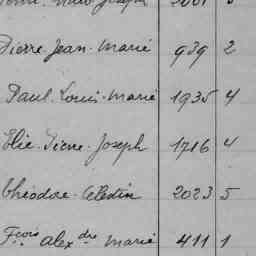 Pierre Jean-Marie 939 2
Paul-Louis-Marie 1935 4
Elie-Pierre-Joseph 1716 4
Théodore-Célestin 2023 5
Fçois Alexdre Marie 411 1